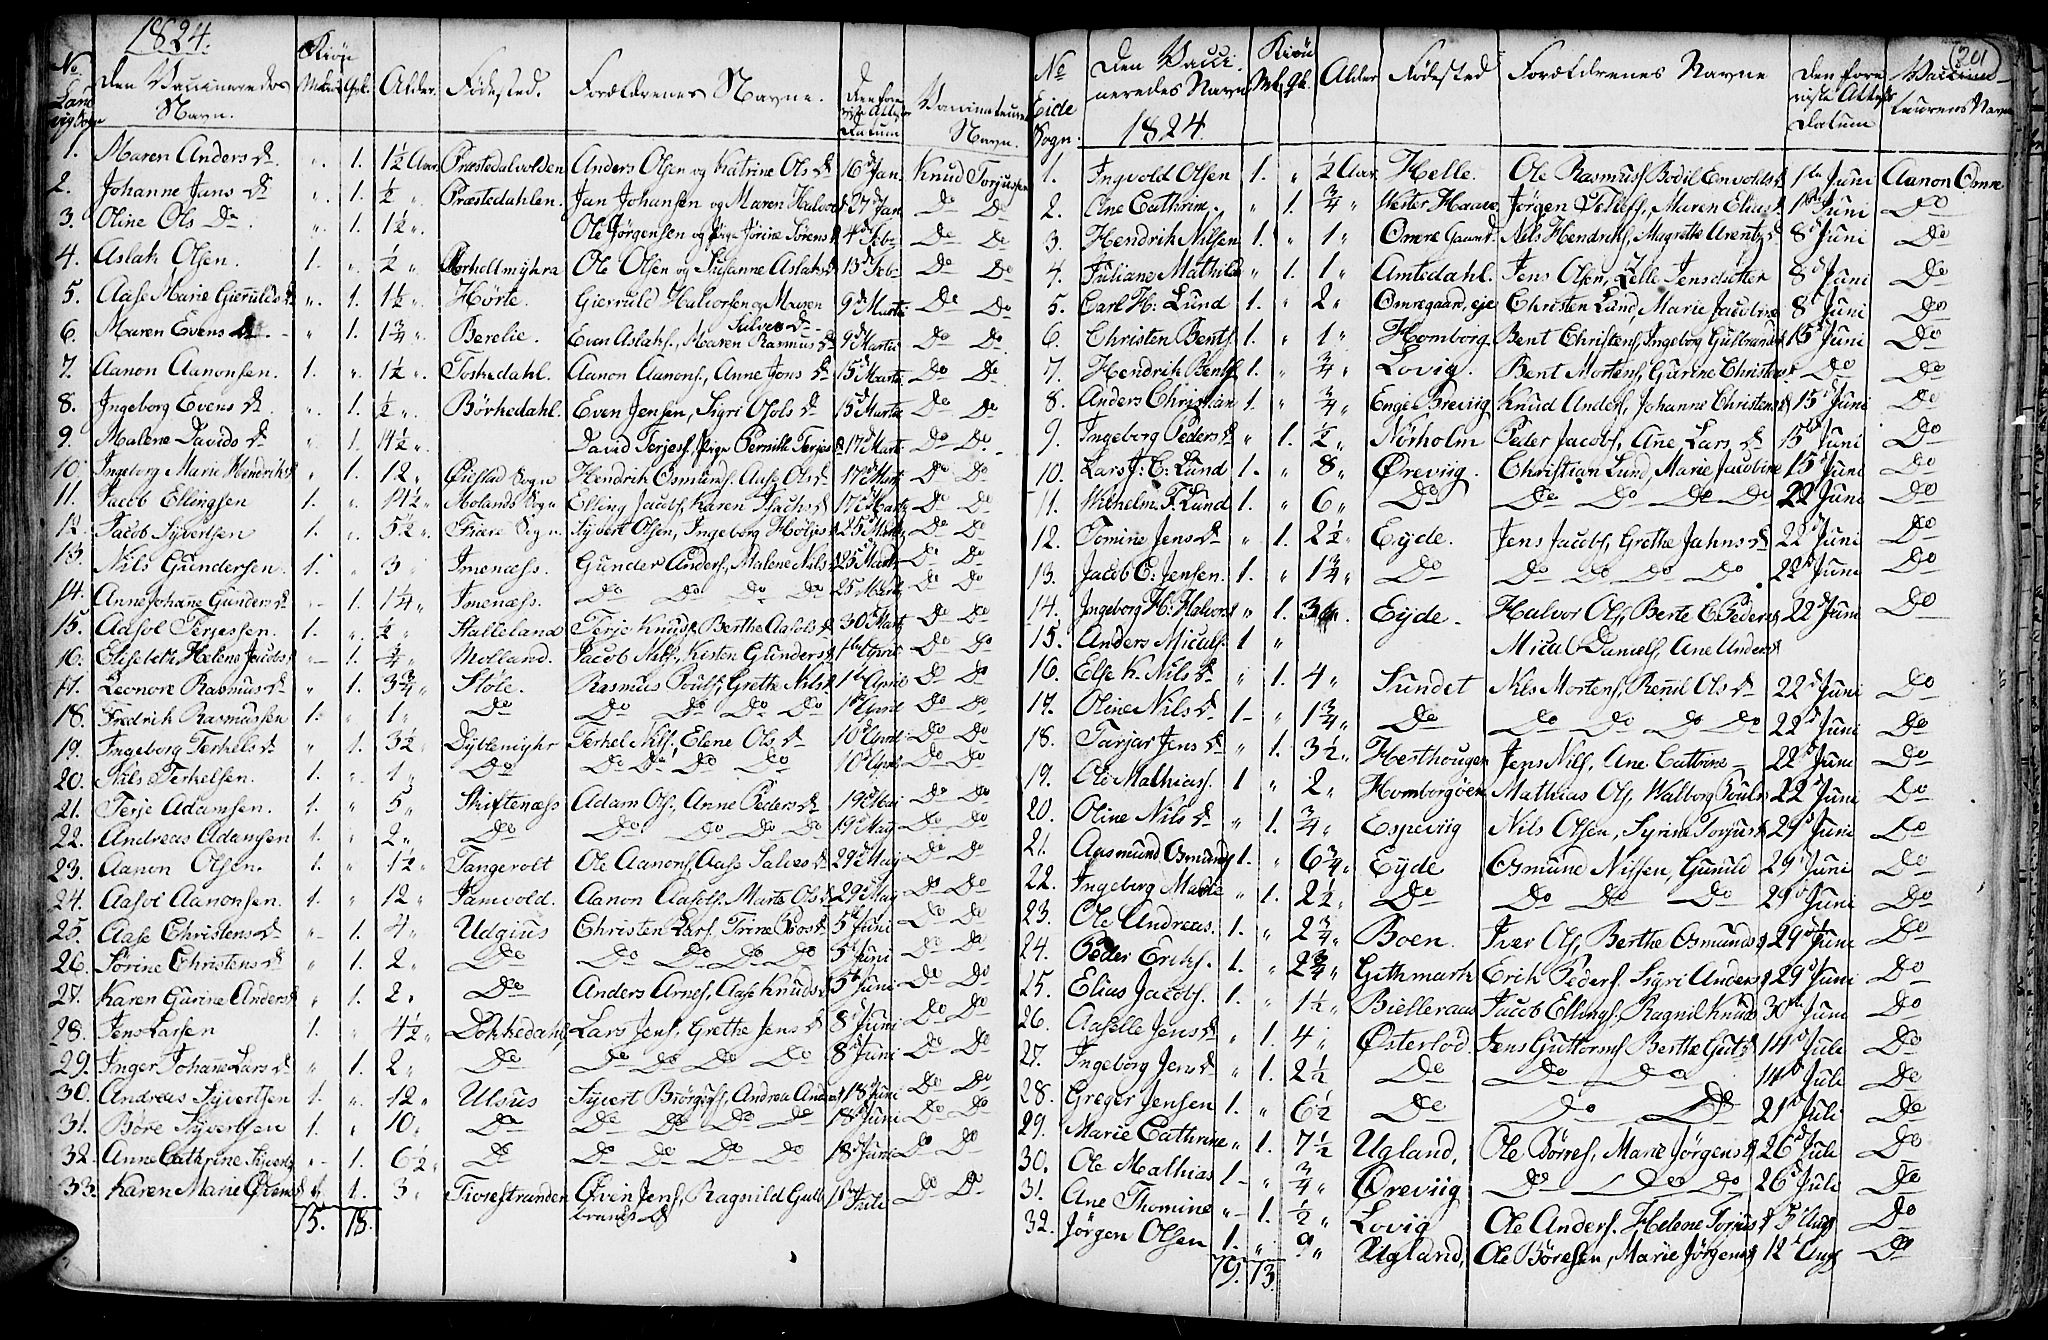 1824.
No
Landvig Sogn
Den Vaccineredes Navn.
Kiøn
Mk. Qk.
Alder.
Fødested.
Forældrenes Navne.
Den foreviste Attests Datum
Vaccinateurens Navn.
1. Maren Anders D. " 1. 1½ Aar Præstedalvolden Anders Olsen og Katrine Ols D 16d Jan. Knud Torjussen
2. Johanne Jans D " 1. ½ " Præstedahlen. Jan Johansen og Maren Halvors D 27d Jan Do Do
3. Oline Ols D. " 1. 1½ " Ole Jørgensen og Pige Jørine Sørens D 4d Feb. Do Do
4. Aslak Olsen. 1. " ½ " Ole Olsen og Susanne Aslaks D 13d Feb. Do Do
5. Aase Marie Gierulds D " 1. 1½ " Hørte. Gieruld Halvorsen og Maren Salves D 9d Marts Do Do
6. Maren Evens D " 1. 1¾ " Berelie. Even Aslaks., Maren Rasmus D 9d Marts Do Do
7. Aanon Aanonsen. 1. " 1½ " Toskedahl. Aanon Aanons., Anne Jons D 15d Marts Do Do
8. Ingeborg Evens D. " 1. ½ " Børkedahl. Even Jensen, Sigri Olols D 15d Marts Do Do
9. Malene Davids D " 1. 11½ " David Terjes., Pige Pernille Terjes D 17d Marts Do Do
10. Ingeborg Marie Hendriks D " 1. 12 " Øiestad Sogn Hendrik Osmunds., Aase Ols D 17d Marts Do Do
11. Jacob Ellingsen 1. " 11½ " Molands Sogn Elling Jacobs., Karen Isachs D 17d Marts Do Do
12. Jacob Syvertsen 1. " 5½ " Fiære Sogn. Syvert Olsen, Ingeborg 25d Marts Do Do
13. Nils Gundersen. 1. " 3 " Imenæss. Gunder Anders., Malene Nils D 25d Marts Do Do
14. Anne Johanne Gunders D " 1. 1¼ " Imenæss. Do Do Do Do 25 Marts Do Do
15. Aasol Terjessen. 1. " ½ " Stalleland Terje Knuds., Berthe Aasols D 30d Marts Do Do
16. Elisebeth Helene Jacobs D " 1. ¾ " Molland. Jacob Nils., Kisten Gunders D 1ste April Do Do
17. Leonore Rasmus D " 1. 3¾ " Støle. Rasmus Pouls., Grethe Nils D 1ste April Do Do
18. Fredrik Rasmussen 1. " 1 " Do Do Do Do Do 1ste April Do Do
19. Ingeborg Terkels D " 1. 3½ " Dyblemyhr Terkel Nils., Elene Ols D 10d April Do Do
20. Nils Terkelsen. 1. " 1 " Do Do Do Do Do 10d April Do Do
21. Terje Adamsen. 1. " 5 " Skiftenæss Adam Ols., Anne Peders D 19d Mai Do Do
22. Andreas Adamsen 1. " 2 " Do Do Do Do 19d Maj Do Do
23. Aanon Olsen. 1. " 1½ " Tangevolt Ole Aanons., Aase Salves D 29d Maj Do Do
24. Aasol Aanonsen. 1. " 12 " Aanon Aasols., Marte Ols D 29d Maj Do Do
25. Aase Christens D " 1. 4 " Udgius Christen Lars., Trine D 5te Juni Do Do
26. Sørine Christens D " 1. 2 " Do Do Do Do Do 5te Juni Do Do
27. Karen Gurine Anders D " 1. 2 " Do Anders Arnes., Aase Knuds D 5te Juni Do Do
28. Jens Larsen 1. " 4½ " Dokkedahl, Lars Jens., Grethe Jens D 8d Juni Do Do
29. Inger Johanne Lars D " 1. 2 " Do Do Do Do Do 8d Juni Do Do
30. Andreas Syvertsen 1. " 12 " Ulsus Syvert Børges., Andrea Anders D 18d Juni Do Do
31. Børe Syvertsen 1. " 10 " Do Do Do Do Do 18d Juni Do Do
32. Anne Cathrine Syverts D " 1. 6½ " Do Do Do Do Do 18d Juni Do Do
33. Karen Marie Øvens D " 1. 3 " Tiorestranden Øvin Jens., Ragnild Gulbrands D Juli Do Do
15. 18.
201
No
Eide Sogn.
Den Vaccineredes Navn
1824.
Kiøn
Mk. Qk.
Alder
Fødested
Forældrenes Navne
Den foreviste Attests Datum
Vaccinateurens Navn
1. Ingvold Olsen 1. " ½ Aar Helle. Ole Rasmus., Bodil Envolds D 1ste Juni Aanon Omre
2. Ane Cathrine. " 1. ¾ " Wester Haave Jørgen Telles., Maren Elias D 1ste Juni Do
3. Hendrik Nilsen 1. " 1 " Omre Gaard. Nils Hendriks., Magrethe Arentz D 8d Juni Do
4. Juliane Mathilde " 1. 1 " Amtedahl. Jens Olsen, Zelle Jensdatter 8d Juni Do
5. Carl H: Lund 1. " 2 " Omregaard, eje Christen Lund, Marie Jacobine 8d Juni Do
6. Christen Bents. 1. " 1 " Homborg. Bent Christens., Ingeborg Gulbrands D 15d Juni Do
7. Hendrik Bents. 1. " ¾ " Lovig. Bent Mortens., Gurine Christens D Do Do
8. Anders Christian 1. " ¾ " Enge Brevig Knud Anders., Johanne Christens D 15d Juni Do
9. Ingeborg Peders D " 1. ½ " Nørholm Peder Jacobs., Ane Lars D 15d Juni Do
10. Lars J: C: Lund 1. " 8 " Ørevig. Christian Lund, Marie Jacobine 15d Juni Do
11. Wilhelm F. Lund 1. " 6 " Do Do Do Do Do 22 Juni Do
12. Tomine Jens D " 1. 2½ " Eyde. Jens Jacobs., Grethe Jahns D 22d Juni Do
13. Jacob C: Jensen. 1. " 1¾ " Do Do Do Do Do 22d Juni Do
14. Ingeborg H: Halvors D " 1. 3 Eyde. Halvor Ols., Berte C. Peders D 22d Juni Do
15. Anders Micals. 1 " Mical Daniels., Ane Anders D
16. Else K. Nils D " 1. 4 " Sundet Nils Mortens., Renil Ols D 22d Juni Do
17. Oline Nils D 1 " 1¾ " Do Do Do Do Do 22d Juni Do
18. Tarjer Jens D " 1. 3½ " Herthougen Jens Nils., Ane Cattrine 22d Juni Do
19. Ole Mathias. 1 " 2 " Homborgøen Mathias Ols., Walborg Pouls D 22d Juni Do
20. Oline Nils D " 1. ¾ " Espeviig Nils Olsen, Syrine Torjus D 29d Juni Do
21. Aasmund Osmunds. 1. " 6¾ " Eyde Osmund Nilsen, Gunild 29d Juni Do
22. Ingeborg Marie " 1. 2½ " Do Do Do Do 29d Juni Do
23. Ole Andreas. 1. " 2¾ " Boen. Iver Ols., Berthe Osmunds D 29d Juni Do
24. Peder Eriks. 1. " 2¾ " Githmark Erik Peders., Sigri Anders D 29d Juni Do
25. Elias Jacobs. 1. " 1½ " Bielleraas Jacob Ellings., Ragnil Knuds 30te Juni Do
26. Aaselle Jens D " 1. 4 " Østerlod Jens Guttorms., Berthe Guts D 14d Juli Do
27. Ingeborg Jens D " 1. 2½ Do Do Do 14d Juli Do
28. Greger Jensen 1. " 6½ Do Do Do 21d Juli Do
29. Marie Cathrine " 1. 7½ Ugland, Ole Børres., Marie Jørgens D 26d Jule Do
30. Ole Mathias 1 " ¾ " Øreviig Do Do Do 26d Juli Do
31. Ane Thomine " 1. ½ " Lovig Ole Anders. Helene Torjus D 5d Aug Do
32. Jørgen Olsen 1. " 9 " Ugland, Ole Børesen, Marie Jørgens D 12d Aug Do
19. 13.